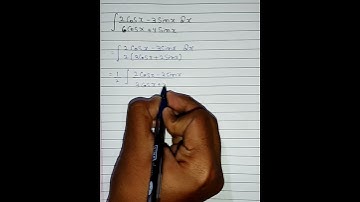 ∫ 2cosx - 3sinx dx
6cosx + 4sinx
= ∫ 2cosx - 3sinx dx
2(3cosx + 2sinx)
= 1/2 ∫ 2cosx - 3sinx
3cosx + 2